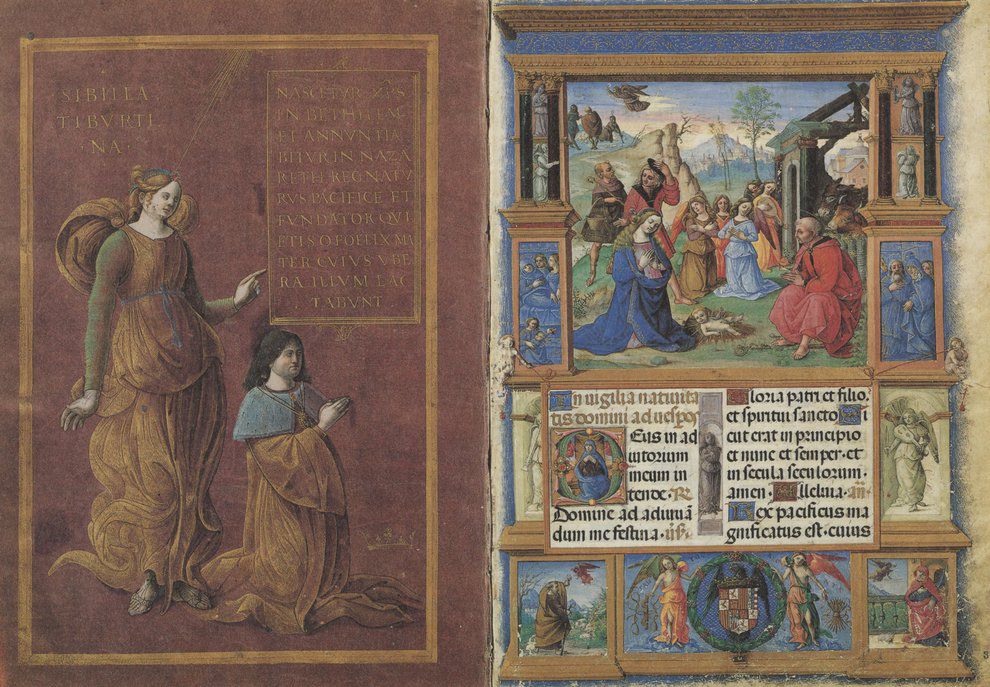 SIBILLA
TIBVRTI
NA·
NASCETVR XPS
IN BETHLEEM
ET ANNVNTIA
BITVR IN NAZA
RETH REGNATV
RVS PACIFICE ET
FVNDATOR QVI
ETIS O FOELIX MA
TER CVIVS VBE
RA ILLVM LAC
TABVNT
In uigilia natiuita
tis domini ad uesp̄os
DEus in ad
iutorium
meum in
tende· R̄
Domine ad adiuuā
dum me festina·
Gloria patri et filio.
et spiritui sancto Si
cut erat in principio
et nunc et semper· et
in secula seculorum.
amen· Alleluia· añ
Rex pacificus ma
gnificatus est· cuius
3